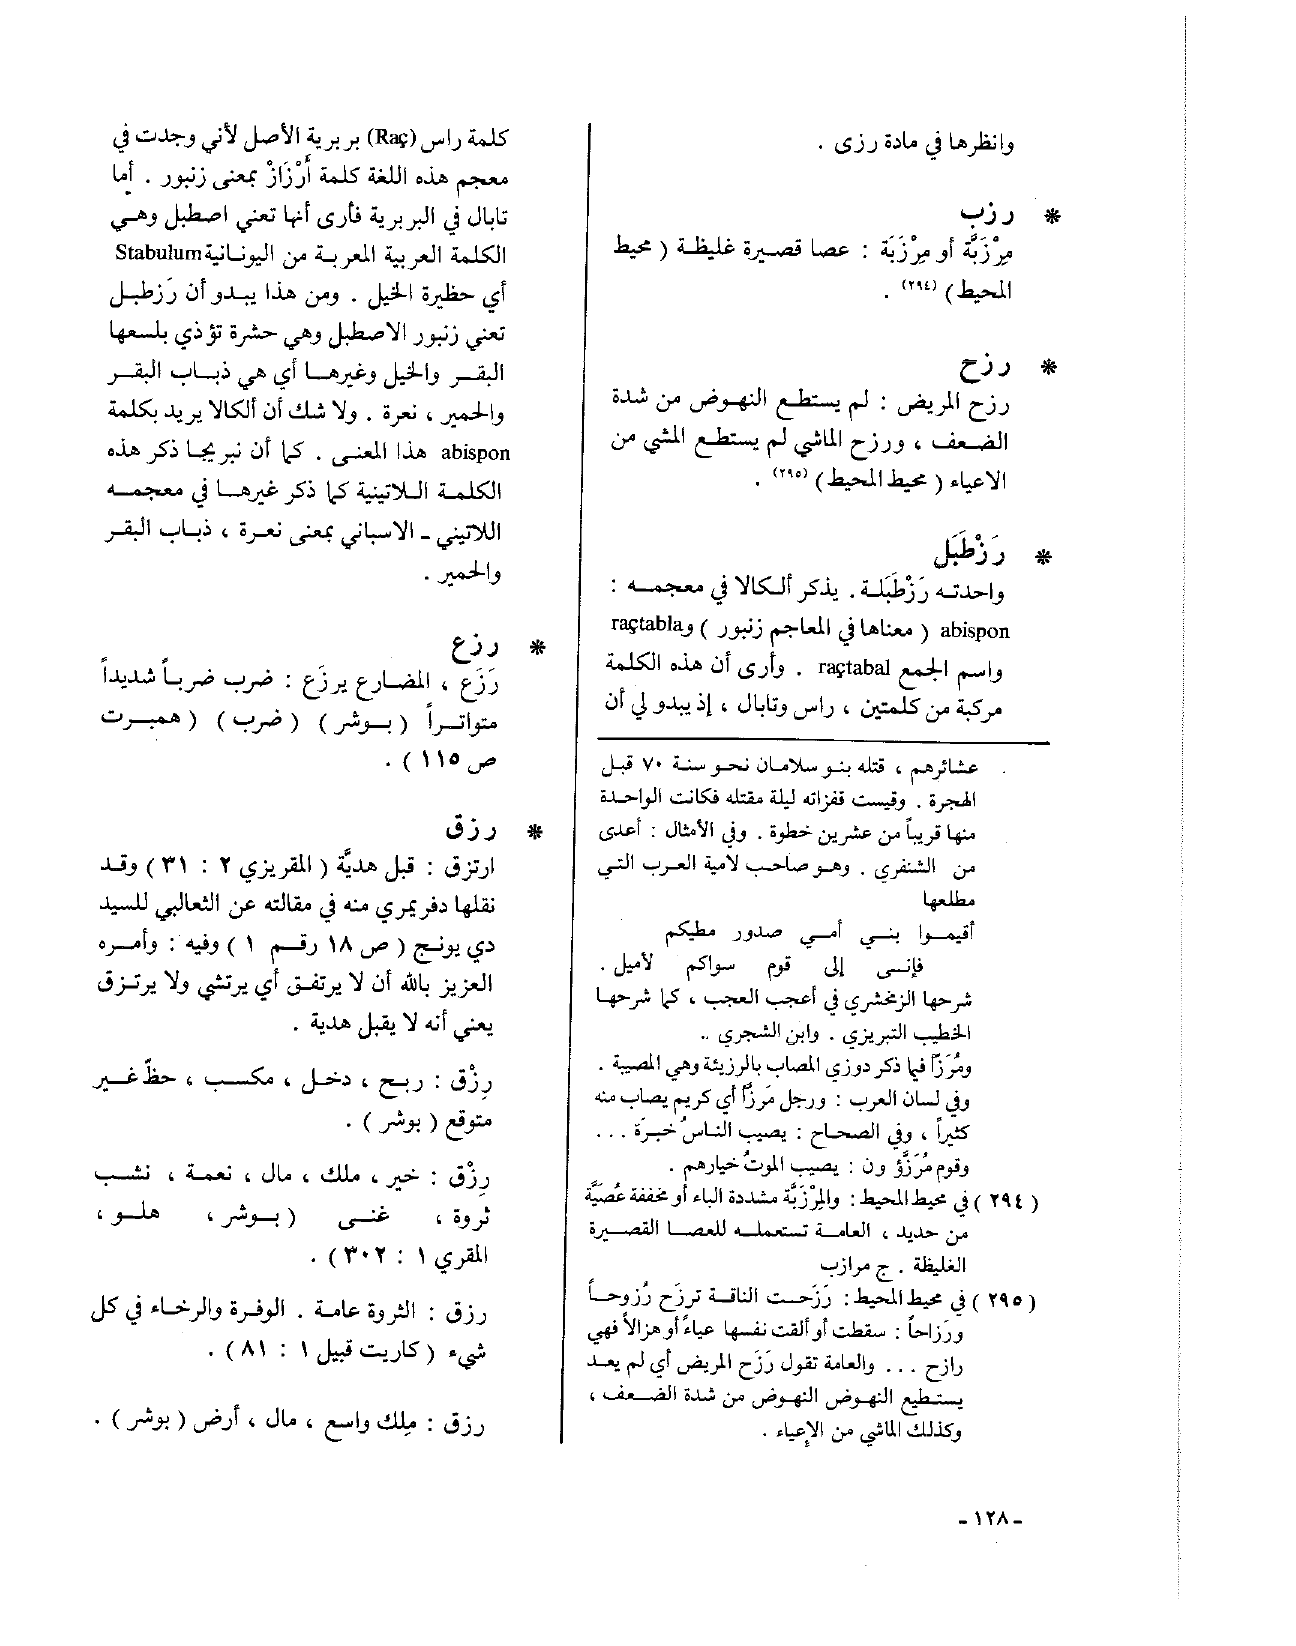 وانظرها في مادة رزى .
* رزب
مِرْزَبَّة أو مِرْزَبَة : عصا قصيرة غليظة ( محيط
المحيط ) (٢٩٤) .
* رزح
رزح المريض : لم يستطع النهوض من شدة
الضعف ، ورزح الماشي لم يستطع المشي من
الاعياء ( محيط المحيط ) (٢٩٥) .
* رَزْطَبَل
واحدته رَزْطَبَلة . يذكر ألكالا في معجمه :
abispon ( معناها في المعاجم زنبور ) وraçtabla
واسم الجمع raçtabal . وأرى أن هذه الكلمة
مركبة من كلمتين ، راس وتابال ، إذ يبدو لي أن
عشائرهم ، قتله بنو سلامان نحو سنة ٧٠ قبل
الهجرة . وقيست قفزاته ليلة مقتله فكانت الواحدة
منها قريباً من عشرين خطوة . وفي الأمثال : أعدى
من الشنفرى . وهو صاحب لامية العرب التي
مطلعها
أقيموا بني أمي صدور مطيكم
فإني إلى قوم سواكم لأميل .
شرحها الزمخشري في أعجب العجب ، كما شرحها
الخطيب التبريزي . وابن الشجري ..
ومُرَزّأ فيما ذكر دوزي المصاب بالرزيئة وهي المصيبة .
وفي لسان العرب : ورجل مُرَزّأ أي كريم يصاب منه
كثيراً ، وفي الصحاح : يصيب الناسُ خيرَهَ ...
وقوم مُرَزَّؤ ون : يصيب الموتُ خيارهم .
( ٢٩٤ ) في محيط المحيط : والمِرْزَبَّة مشددة الباء أو مخففة عُصَيَّة
من حديد ، العامة تستعمله للعصا القصيرة
الغليظة . ج مرازب
( ٢٩٥ ) في محيط المحيط : رَزَحت الناقة ترزَح رُزوحاً
ورَزاحاً : سقطت أو ألقت نفسها عياءً أو هزالاً فهي
رازح ... والعامة تقول رَزَح المريض أي لم يعد
يستطيع النهوض النهوض من شدة الضعف ،
وكذلك الماشي من الإعياء .
كلمة راس (Raç) بربرية الأصل لأني وجدت في
معجم هذه اللغة كلمة أَرْزَازْ بمعنى زنبور . أما
تابال في البربرية فأرى أنها تعني اصطبل وهي
الكلمة العربية المعربة من اليونانية Stabulum
أي حظيرة الخيل . ومن هذا يبدو أن رَزطبل
تعني زنبور الاصطبل وهي حشرة تؤذي بلسعها
البقر والخيل وغيرها أي هي ذباب البقر
والحمير ، نعرة . ولا شك أن ألكالا يريد بكلمة
abispon هذا المعنى . كما أن نبريجا ذكر هذه
الكلمة اللاتينية كما ذكر غيرها في معجمه
اللاتيني ـ الاسباني بمعنى نعرة ، ذباب البقر
والحمير .
* رزع
رَزَع ، المضارع يرزَع : ضرب ضرباً شديداً
متواتراً ( بوشر ) ( ضرب ) ( همبرت
ص ١١٥ ) .
* رزق
ارتزق : قبل هديَّة ( المقريزي ٢ : ٣١ ) وقد
نقلها دفريمري منه في مقالته عن الثعالبي للسيد
دي يونج ( ص ١٨ رقم ١ ) وفيه : وأمره
العزيز بالله أن لا يرتفق أي يرتشي ولا يرتزق
يعني أنه لا يقبل هدية .
رِزْق : ربح ، دخل ، مكسب ، حظّ غير
متوقع ( بوشر ) .
رِزْق : خير ، ملك ، مال ، نعمة ، نشب
ثروة ، غنى ( بوشر ، هلو ،
المقري ١ : ٣٠٢ ) .
رزق : الثروة عامة . الوفرة والرخاء في كل
شيء ( كاريت قبيل ١ : ٨١ ) .
رزق : مِلك واسع ، مال ، أرض ( بوشر ) .
ـ ١٢٨ ـ